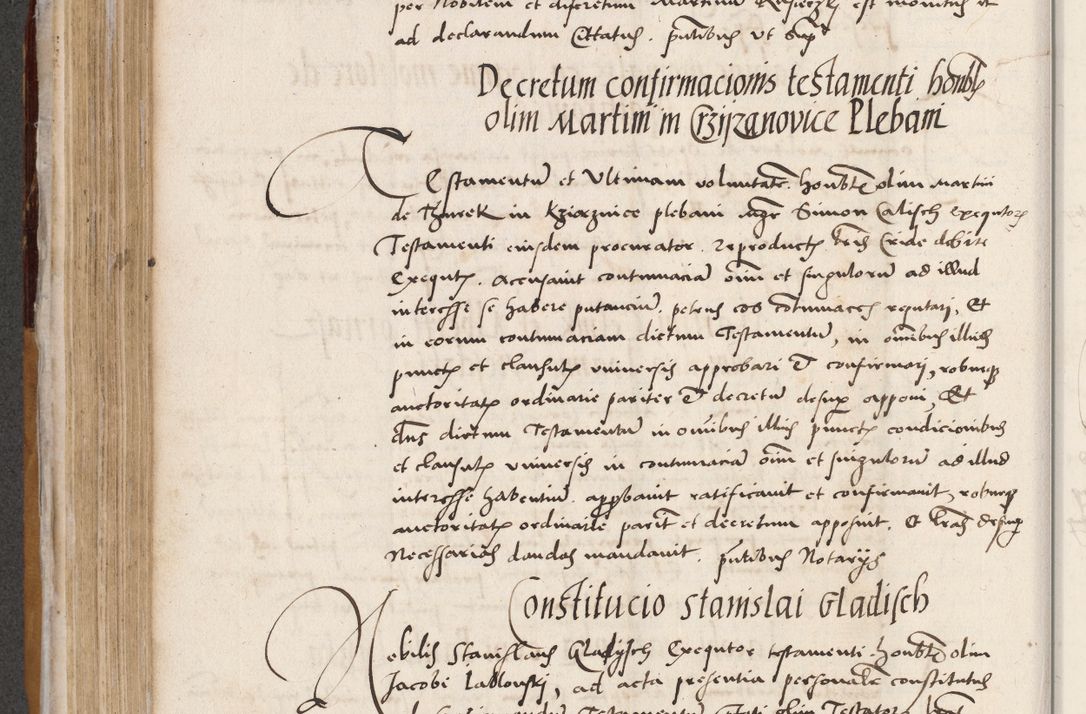 per Nobilem et discretum Martinum est monitus et
ad declarandum Citatus. pñtibus ut supª
Decretum confirmacionis testamenti honbł
olim Martini in Crzijzanovice Plebani
Testamentũ et Ultimam voluntatẽ honbił olim Martini
de Thurek in Kziaznice plebani mgr Simon Calisch exequtor
Testamenti eiusdem procurator reproductꝭ lris Cride debite
Exequtꝭ. accusavit contumaciã oim et singulorũ ad illud
interesse se habere putanciũ. petens eos contumaces reputari, Et
in eorum contumaciam dictum Testamentũ, in omibus illius
punctꝭ et clausulꝭ universis approbari et confirmari, roburque
auctoritatꝭ ordinarie pariter et decretũ desup apponi, Et
dns dictum Testamentũ in omibus illius punctꝭ condicionibus
et clausulꝭ universis in contumaciã oim et singulorũ ad illud
interesse habentiũ approbavit ratificavit et confirmavit, roburque
auctoritatꝭ ordinarie parit et decretum apposuit, Et lras desup
Necessarias dandas mandavit. pñtibus Notarijs
Constitucio Stanislai Gladisch
Nobilis Stanislaus Gladijsch Exequtor testamenti honbił olim
Jacobi Lablonski, ad acta presentia personalr constitutus
Testamentũ olim Testatoris